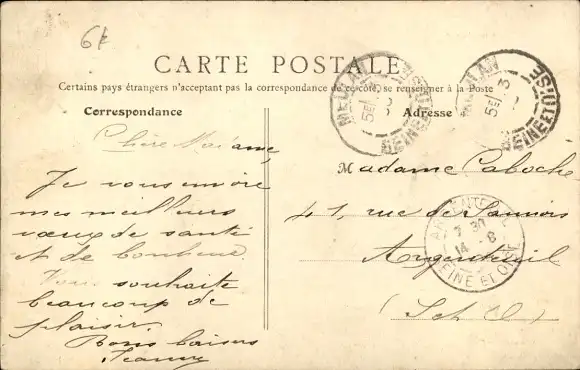 6f
CARTE POSTALE
Certains pays étrangers n'acceptant pas la correspondance de ce côté, se renseigner à la Poste
Correspondance
Adresse
Chère Madame
Je vous envoie
mes meilleurs
vœux de santé
et de bonheur.
Vous souhaite
beaucoup de
plaisir.
Bons baisers
Jeanne
Madame Caboche
41, rue de Sannois
Argenteuil
(S et O)
MEULAN
SEINE ET OISE
MEULAN
SEINE ET OISE
ARGENTEUIL
7 30
14 - 8
SEINE ET OISE